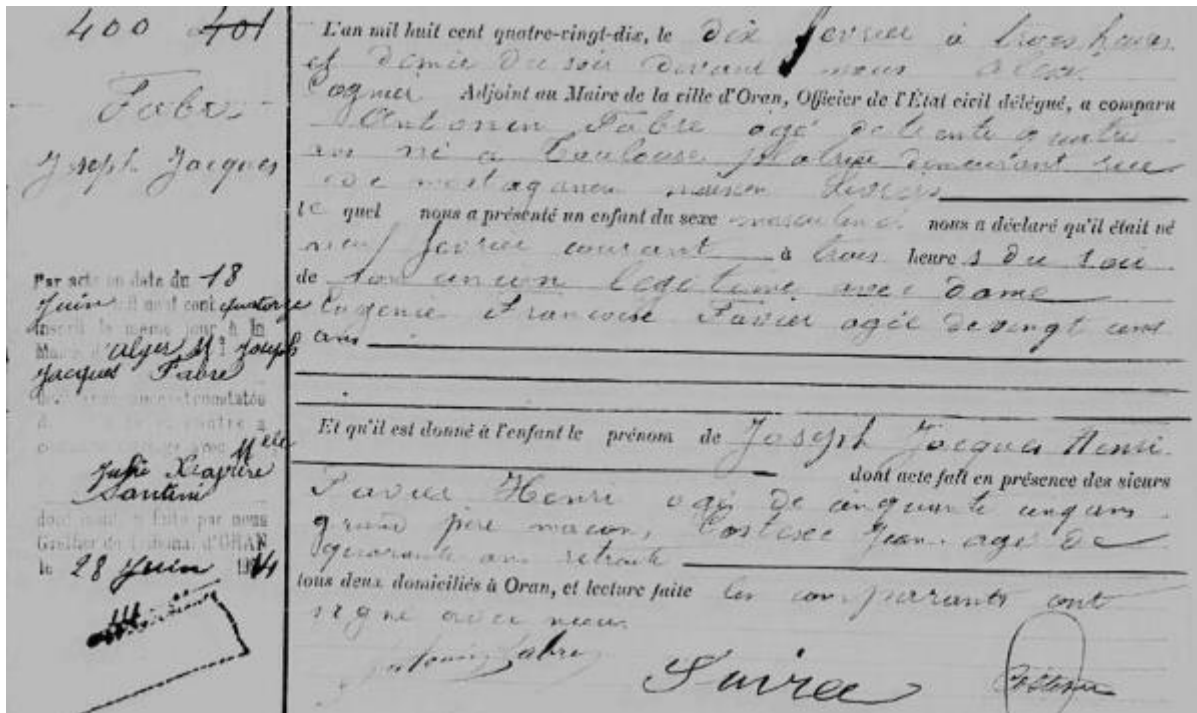 400 401
Fabre
Joseph Jacques
Par acte en date du 18
Juin mil neuf cent quatorze
inscrit le même jour à la
Mairie d'Alger Mr Joseph
Jacques Fabre
a
mariage avec Melle
Julie Xavière
Santini
dont mention faite par nous
Greffier du Tribunal d'ORAN
le 28 Juin 1914
L'an mil huit cent quatre-vingt-dix, le dix fevrier à trois heures
et demie du soir devant nous alex
Cognier Adjoint au Maire de la ville d'Oran, Officier de l'État civil délégué, a comparu
Antonin Fabre agé de trente quatre
ans né a Toulouse platrier demeurant rue
de mostaganem maison
le quel nous a présenté un enfant du sexe masculin et nous a déclaré qu'il était né
neuf fevrier courant à trois heures du soir
de son union legitime avec dame
Eugenie Francoise Favier agée de vingt uns
ans
Et qu'il est donné à l'enfant le prénom de Joseph Jacques Henri
dont acte fait en présence des sieurs
Favier Henri agé de cinquante cinq ans
grand père macon, Jean agé de
quarante ans retraité
tous deux domiciliés à Oran, et lecture faite les comparants ont
signé avec nous
Antonin Fabre
Favier